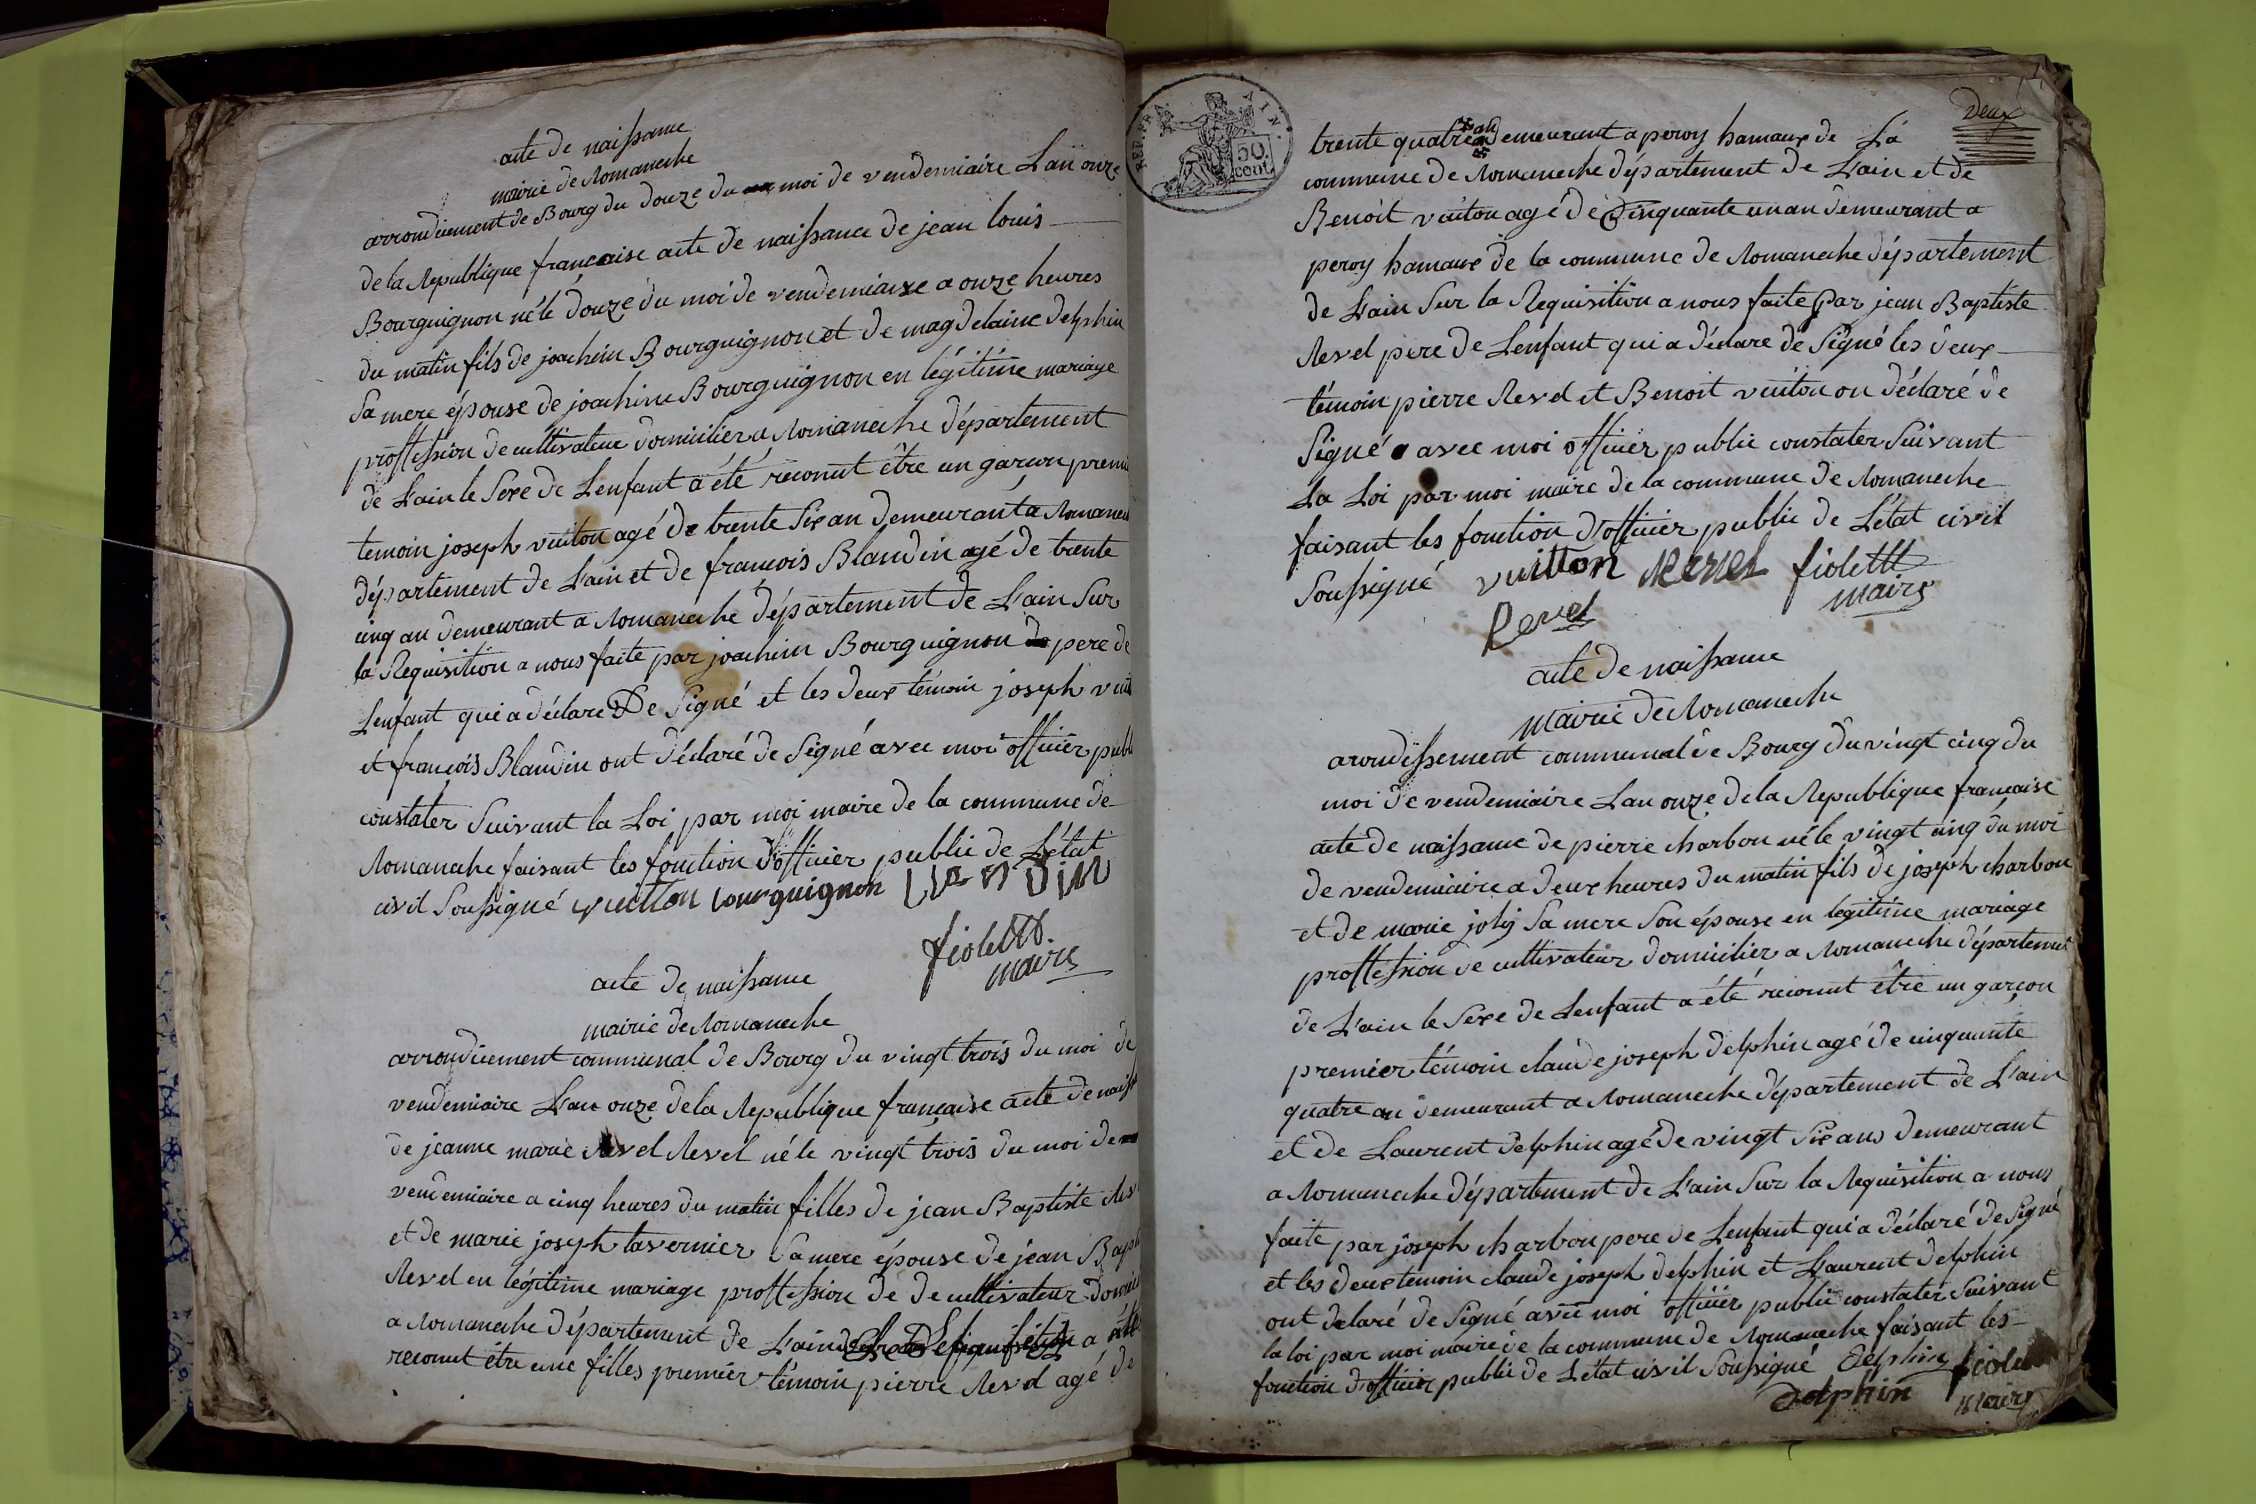 acte de naissance
mairie de Romaneche
arrondicement de Bourg du douze du moi de vendemiaire L'an onze
de la Republique francaise acte de naissance de jean louis
Bourguignon né le douze du moi de vendemiaire a onze heures
du matin fils de joachim Bourguignon et de magdelaine delphin
Sa mere épouse de joachim Bourguignon en légitime mariage
proffession de cultivateur domicilier a Romaneche département
de L'ain le Sexe de L'enfant a été reconut être un garcon premi
temoin joseph vuiton agé de trente Six an demeurant a Romanec
département de L'ain et de francois Blandin agé de trente
cinq an demeurant a Romaneche département de L'ain Sur
la Requisition a nous faite par joachim Bourguignon pere de
Lenfant qui a déclare De Signé et les deux témoin joseph vuit
et francois Blandin ont déclaré de Signé avec moi officier publ
constater Suivant la Loi par moi maire de la commune de
Romaneche faisant les fonction d'officier public de L'état
civil Soussigné vuitton bourguignon blandin
fiolett
maire
acte de naissance
mairie de Romaneche
arrondicement communal de Bourg du vingt trois du moi de
vendemiaire L'an onze de la Republique française acte de naiss
de jeanne marie Revel né le vingt trois du moi de
vendemiaire a cinq heures du matin filles de jean Baptiste Rev
et de marie joseph tavernier Sa mere épouse de jean Bapt
Revel en légitime mariage proffession de de cultivateur domici
a Romaneche département de L'ain a été
reconut être une filles premier témoin pierre Revel agé de
Deux
REP. FRA. 50 cent.
trente quatre an demeurant a peroy hamaux de La
commune de Romaneche département de L'ain et de
Benoit vuiton agé de Cinquante un an demeurant a
peroy hamaux de la commune de Romaneche département
de L'ain Sur la Requisition a nous faite Par jean Baptiste
Revel pere de Lenfant qui a déclare de Signé les deux
témoin pierre Revel et Benoit vuiton on déclaré de
Signé avec moi officier public constater Suivant
La Loi par moi maire de la commune de Romaneche
faisant les fonction d'officier public de L'état civil
Soussigné vuitton Revel fiolett
Revel maire
acte de naissance
mairie de Romaneche
arondissement communal de Bourg du vingt cinq du
moi de vendemiaire L'an onze de la Republique française
acte de naissance de pierre charbon né le vingt cinq du moi
de vendemiaire a deux heures du matin fils de joseph charbon
et de marie joly Sa mere Son épouse en legitime mariage
proffession de cultivateur domicilier a Romaneche départemen
de L'ain le Sexe de Lenfant a été reconut être un garçon
premier témoin claude joseph delphin agé de cinquante
quatre an demeurant a Romaneche département de L'ain
et de Laurent delphin agé de vingt Six ans demeurant
a Romaneche département de L'ain Sur la Requisition a nous
faite par joseph charbon pere de Lenfant qui a déclaré de Signé
et les deux temoin claude joseph delphin et Laurent delphin
ont delaré de Signé avec moi officier public constater Suivant
la loi par moi maire de la commune de Romaneche faisant les
fonction d'officier public de L'etat civil Soussigné delphin fiolett
delphin Maire